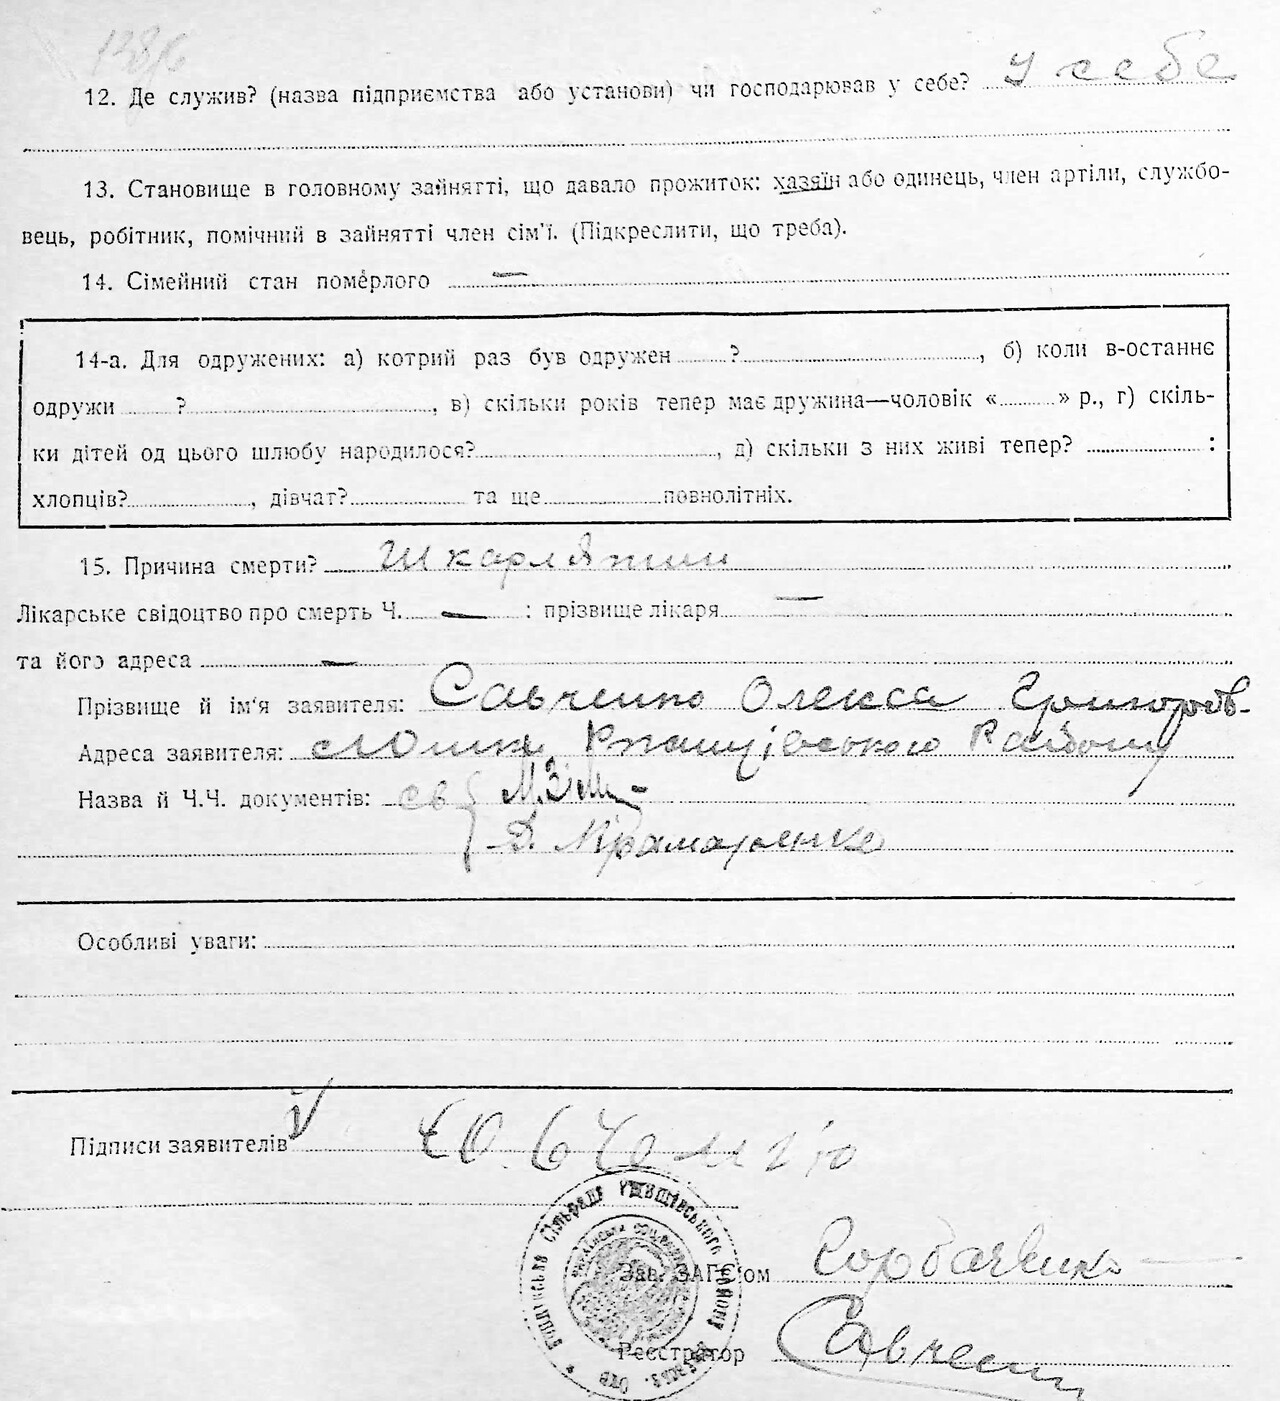 138/6
12. Де служив? (назва підприємства або установи) чи господарював у себе? у себе
13. Становище в головному зайнятті, що давало прожиток: хазяїн або одинець, член артіли, службо-
вець, робітник, помічний в зайнятті член сім'ї. (Підкреслити, що треба).
14. Сімейний стан померлого —
14-а. Для одружених: а) котрий раз був одружен ? , б) коли в-останнє
одружи ? , в) скільки років тепер має дружина—чоловік « » р., г) скіль-
ки дітей од цього шлюбу народилося? , д) скільки з них живі тепер? :
хлопців? , дівчат? та ще повнолітніх.
15. Причина смерти? Шкарлятини
Лікарське свідоцтво про смерть Ч. — : прізвище лікаря —
та його адреса —
Прізвище й ім'я заявителя: Савченко Олекса Григоров-
Адреса заявителя: Району
Назва й Ч.Ч. документів: св
Д. Крамаренко
Особливі уваги:
Підписи заявителів
Зав. ЗАГС'ом Горбаченко
Реєстратор Савченко